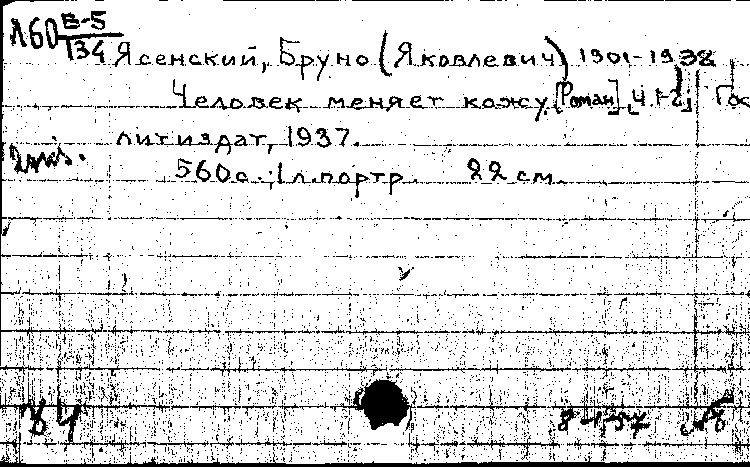 Л60 В-5
134
Ясенский, Бруно (Яковлевич) 1901-1938
Человек меняет кожу. [Роман], [Ч. 1-2] Гос
литиздат, 1937.
560с.; 1л.портр. 22 см.